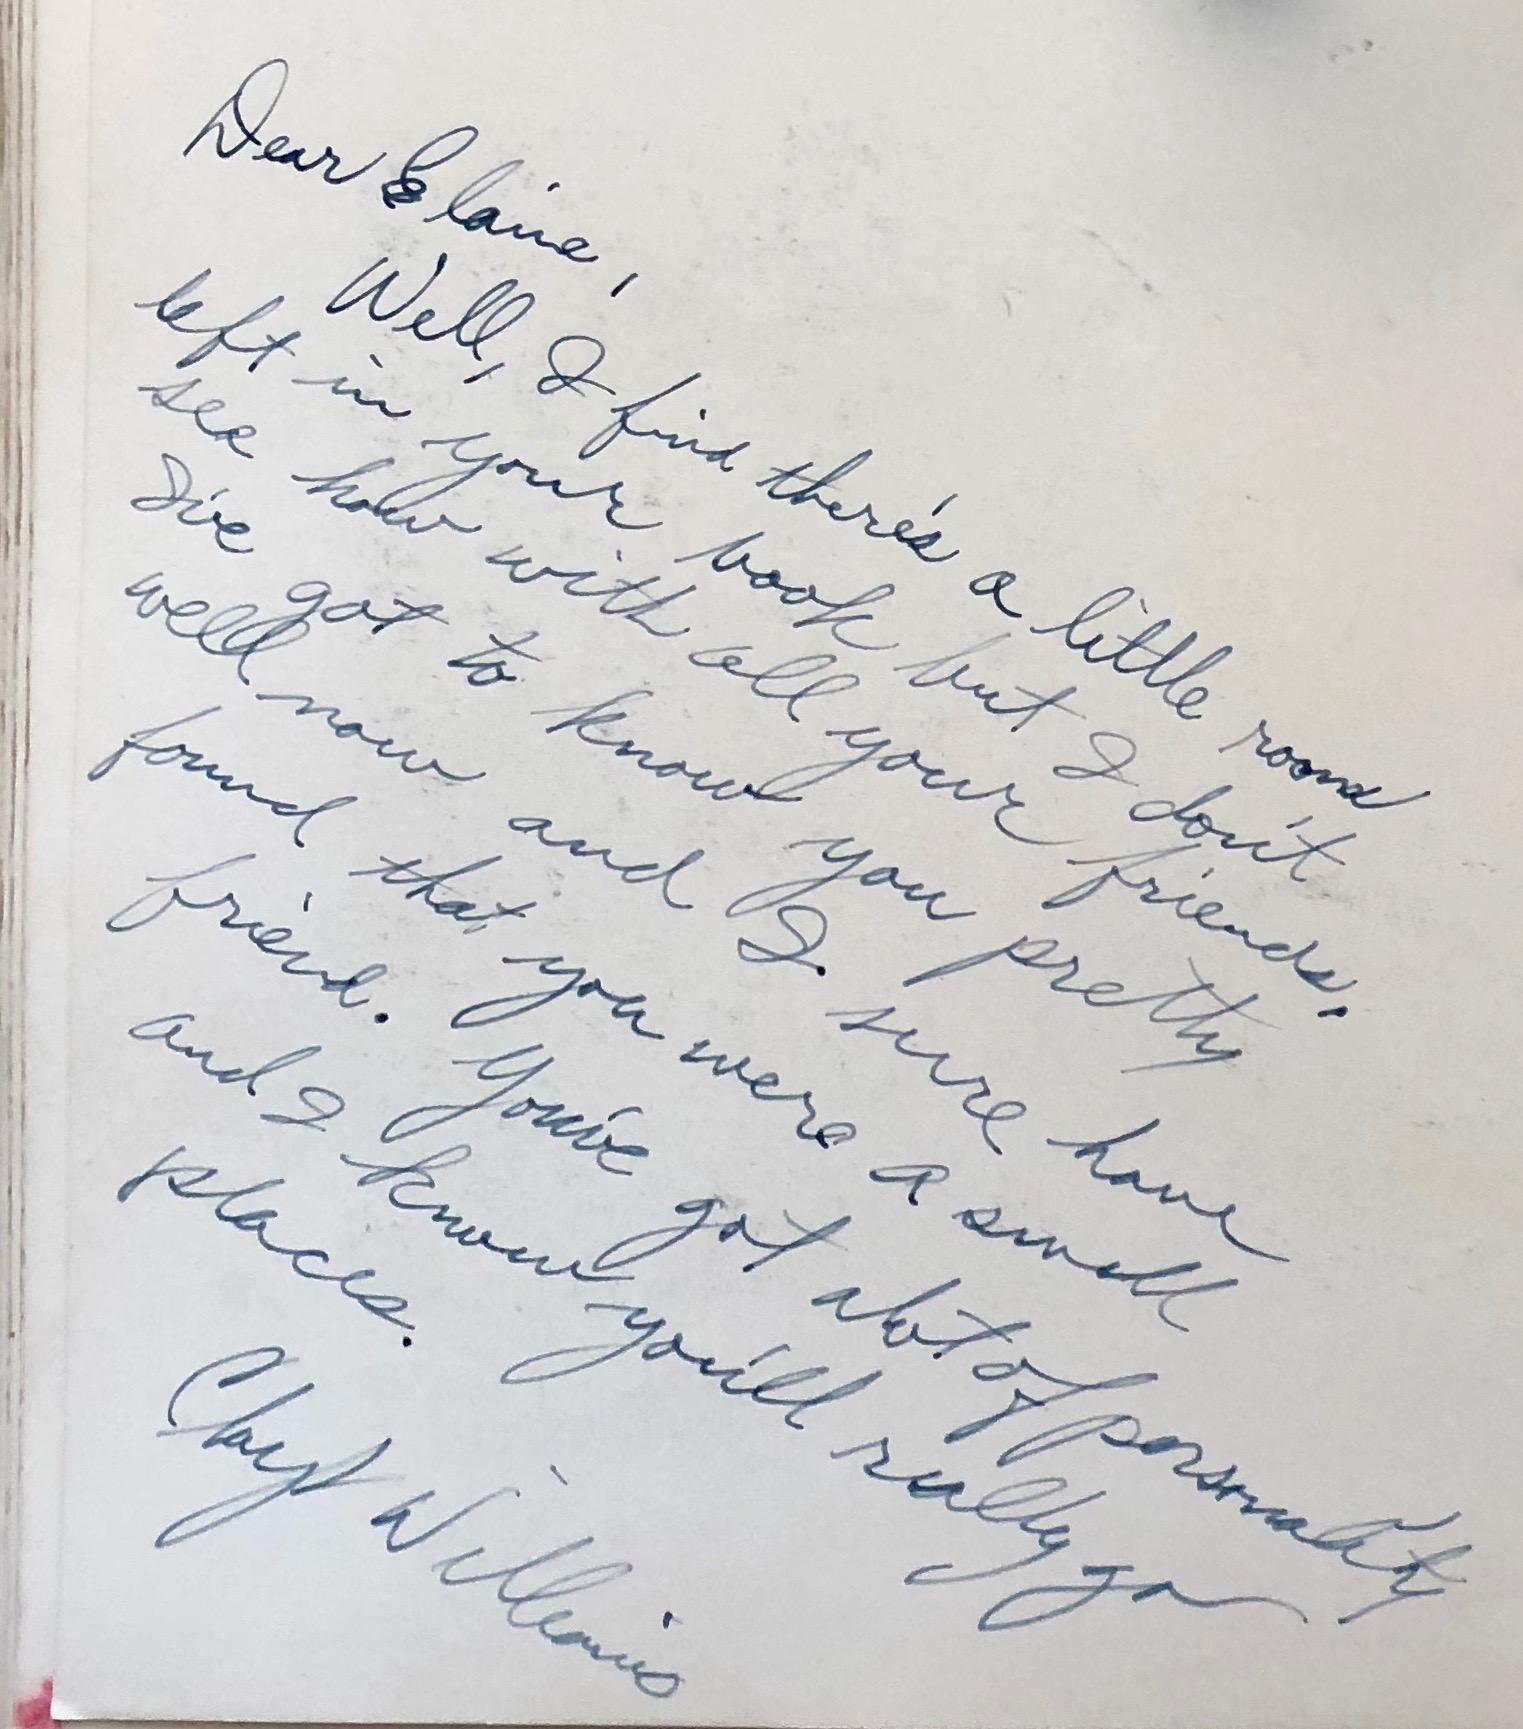 Dear Elaine,
Well, I find there's a little room
left in your book but I don't
see how with all your friends.
I've got to know you pretty
well now and I sure have
found that you were a swell
friend. You've got alot of personality
and I know you'll really go
places.
Cheryl Williams